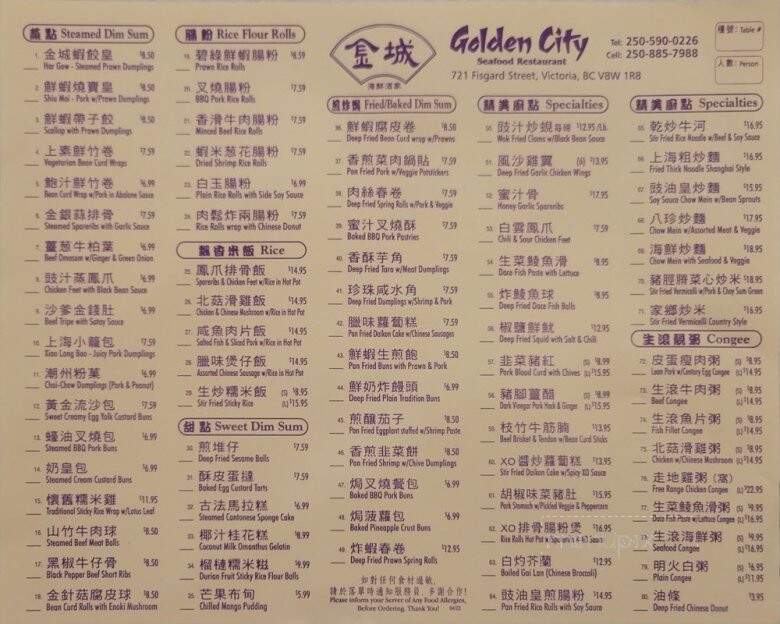 蒸點 Steamed Dim Sum
1. 金城蝦餃皇 $8.50
Har Gow - Steamed Prawn Dumplings
2. 鮮蝦燒賣皇 $8.50
Shiu Mai - Pork w/Prawn Dumplings
3. 鮮蝦帶子餃 $8.50
Scallop with Prawn Dumplings
4. 上素鮮竹卷 $7.59
Vegetarian Bean Curd Wraps
5. 鮑汁鮮竹卷 $6.99
Bean Curd Wrap w/Pork in Abalone Sauce
6. 金銀蒜排骨 $7.59
Steamed Spareribs with Garlic Sauce
7. 薑葱牛柏葉 $6.99
Beef Omasum w/Ginger & Green Onion
8. 豉汁蒸鳳爪 $6.99
Chicken Feet with Black Bean Sauce
9. 沙爹金錢肚 $6.99
Beef Tripe with Satay Sauce
10. 上海小籠包 $7.59
Xiao Long Bao - Juicy Pork Dumplings
11. 潮州粉菓 $6.99
Chai-Chow Dumplings (Pork & Peanut)
12. 黃金流沙包 $7.59
Sweet Creamy Egg Yolk Custard Buns
13. 蠔油叉燒包 $6.99
Steamed BBQ Pork Buns
14. 奶皇包 $6.99
Steamed Cream Custard Buns
15. 懷舊糯米雞 $11.95
Traditional Sticky Rice Wrap w/Lotus Leaf
16. 山竹牛肉球 $8.50
Steamed Beef Meat Balls
17. 黑椒牛仔骨 $8.50
Black Pepper Beef Short Ribs
18. 金針菇腐皮球 $8.50
Bean Curd Rolls with Enoki Mushroom
腸粉 Rice Flour Rolls
19. 碧綠鮮蝦腸粉 $8.59
Prawn Rice Rolls
20. 叉燒腸粉 $7.59
BBQ Pork Rice Rolls
21. 香滑牛肉腸粉 $7.59
Minced Beef Rice Rolls
22. 蝦米葱花腸粉 $7.59
Dried Shrimp Rice Rolls
23. 白玉腸粉 $6.99
Plain Rice Rolls with Side Soy Sauce
24. 肉鬆炸兩腸粉 $7.59
Rice Rolls wrap with Chinese Donut
飄香米飯 Rice
25. 鳳爪排骨飯 $14.95
Spareribs & Chicken Feet w/Rice in Hot Pot
26. 北菇滑雞飯 $14.95
Chicken & Chinese Mushroom w/Rice in Hot Pot
27. 咸魚肉片飯 $14.95
Salted Fish & Sliced Pork w/Rice in Hot Pot
28. 臘味煲仔飯 $14.95
Assorted Chinese Sausage w/Rice in Hot Pot
29. 生炒糯米飯 (S) $8.99
Stir Fried Sticky Rice (L) $15.95
甜點 Sweet Dim Sum
30. 煎堆仔 $7.59
Deep Fried Sesame Balls
31. 酥皮蛋撻 $7.59
Baked Egg Custard Tarts
32. 古法馬拉糕 $6.99
Steamed Cantonese Sponge Cake
33. 椰汁桂花糕 $8.99
Coconut Milk Omanthus Gelatin
34. 榴槤糯米糍 $9.99
Durian Fruit Sticky Rice Flour Balls
35. 芒果布甸 $5.99
Chilled Mango Pudding
金城
海鮮酒家
Golden City
Seafood Restaurant
721 Fisgard Street, Victoria, BC V8W 1R8
Tel: 250-590-0226
Cell: 250-885-7988
檯號: Table #
人數: Person
煎炸焗 Fried/Baked Dim Sum
36. 鮮蝦腐皮卷 $8.50
Deep Fried Bean Curd wrap w/Prawns
37. 香煎菜肉鍋貼 $7.59
Pan Fried Pork w/Veggie Potstickers
38. 肉絲春卷 $7.59
Deep Fried Spring Rolls w/Pork & Veggie
39. 蜜汁叉燒酥 $7.59
Baked BBQ Pork Pastries
40. 香酥芋角 $7.59
Deep Fried Taro w/Meat Dumplings
41. 珍珠咸水角 $7.59
Deep Fried Dumplings w/Shrimp & Pork
42. 臘味蘿蔔糕 $7.59
Pan Fried Daikon Cake w/Chinese Sausages
43. 鮮蝦生煎飽 $8.50
Pan Fried Buns with Prawn & Pork
44. 鮮奶炸饅頭 $6.99
Deep Fried Plain Tradition Buns
45. 煎釀茄子 $8.50
Pan Fried Eggplant stuffed w/Shrimp Paste
46. 香煎韭菜餅 $8.50
Pan Fried Shrimp w/Chive Dumplings
47. 焗叉燒餐包 $6.99
Baked BBQ Pork Buns
48. 焗菠蘿包 $6.99
Baked Pineapple Crust Buns
49. 炸蝦春卷 $12.95
Deep Fried Prawn Spring Rolls
如對任何食材過敏,
請於落單時通知服務員, 多謝合作!
Please inform your Server of Any Food Allergies,
Before Ordering. Thank You! 04/22
精美廚點 Specialties
50. 豉汁炒蜆 每磅 $12.95/Lb.
Wok Fried Clams w/Black Bean Sauce
51. 風沙雞翼 (6) $13.95
Deep Fried Garlic Chicken Wings
52. 蜜汁骨 $17.95
Honey Garlic Spareribs
53. 白雲鳳爪 $7.59
Chili & Sour Chicken Feet
54. 生菜鯪魚滑 $8.95
Dace Fish Paste with Lettuce
55. 炸鯪魚球 $8.95
Deep Fried Dace Fish Balls
56. 椒鹽鮮魷 $12.95
Deep Fried Squid with Salt & Chili
57. 韭菜豬紅 (S) $8.99
Pork Blood Curd with Chives (L) $15.95
58. 豬腳薑醋 (S) $8.99
Dark Vinegar Pork Hock & Ginger (L) $15.95
59. 枝竹牛筋腩 $13.95
Beef Brisket & Tendon w/Bean Curd Sticks
60. XO醬炒蘿蔔糕 $13.95
Stir Fried Daikon Cake w/Spicy XO Sauce
61. 胡椒味菜豬肚 $15.95
Pork Stomach w/Pickled Veggie & Peppercorn
62. XO排骨腸粉煲 $16.95
Rice Rolls Hot Pot w/Spareribs & XO Sauce
63. 白灼芥蘭 $12.95
Boiled Gai Lan (Chinese Broccoli)
64. 豉油皇煎腸粉 $14.95
Pan Fried Rice Rolls with Soy Sauce
精美廚點 Specialties
65. 乾炒牛河 $16.95
Stir Fried Rice Noodle w/Beef & Soy Sauce
66. 上海粗炒麵 $16.95
Fried Thick Noodle Shanghai Style
67. 豉油皇炒麵 $15.95
Soy Sauce Chow Mein w/Bean Sprouts
68. 八珍炒麵 $17.95
Chow Mein w/Assorted Meat & Veggie
69. 海鮮炒麵 $18.95
Chow Mein with Seafood & Veggie
70. 豬脛腩菜心炒米 $18.95
Stir Fried Vermicelli w/Pork & Choy Sum Green
71. 家鄉炒米 $16.95
Stir Fried Vermicelli Country Style
生滾靚粥 Congee
72. 皮蛋瘦肉粥 (S) $8.99
Lean Pork w/Century Egg Congee (L) $14.95
73. 生滾牛肉粥 (S) $8.99
Beef Congee (L) $14.95
74. 生滾魚片粥 (S) $8.99
Fish Fillet Congee (L) $14.95
75. 北菇滑雞粥 (S) $8.99
Chicken w/Chinese Mushroom (L) $14.95
76. 走地雞粥 (窩)
Free Range Chicken Congee (L) $22.95
77. 生菜鯪魚滑粥 (S) $9.99
Dace Fish Paste w/Lettuce Congee (L) $16.95
78. 生滾海鮮粥 (S) $9.99
Seafood Congee (L) $16.95
79. 明火白粥 (S) $6.99
Plain Congee (L) $11.95
80. 油條 $3.99
Deep Fried Chinese Donut